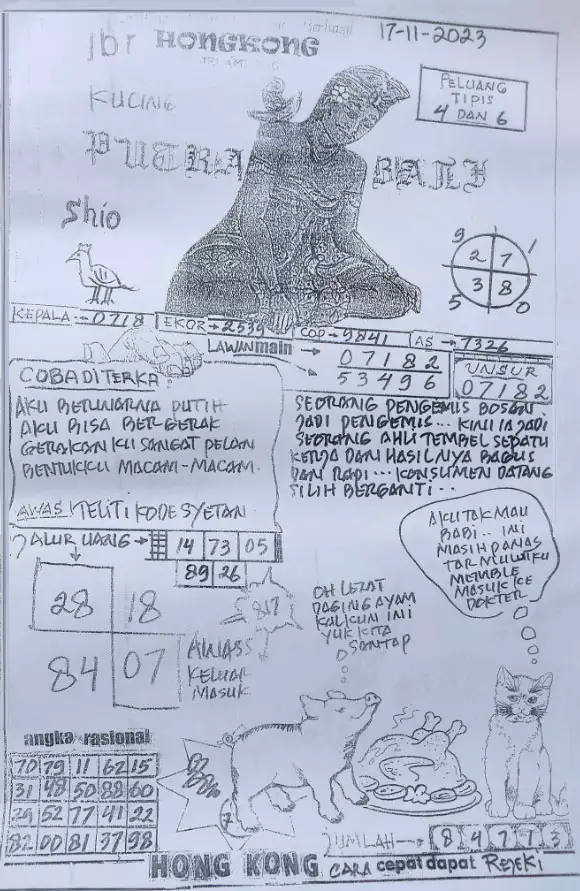 Berhasil
17-11-2023
jbr HONGKONG
KUCING
PELUANG
TIPIS
4 DAN 6
PUTRA BALI
Shio
9 1
2 7
3 8
5 0
KEPALA → 0718
EKOR → 2539
COP → 9841
AS → 7326
LAWAN main →
07182
53496
UNSUR
07182
COBA DITERKA?
AKU BERWARNA PUTIH
AKU BISA BERGERAK
GERAKAN KU SANGAT PELAN
BENTUKKU MACAM-MACAM.
AWAS TELITI KODE SYETAN.
SEORANG PENGEMIS BOSAN
JADI PENGEMIS... KINI IA JADI
SEORANG AHLI TEMBEL SEPATU
KERJA DAN HASILNYA BAGUS
DAN RAPI... KONSUMEN DATANG
SILIH BERGANTI..
JALUR UANG → 14 73 05
89 26
28 18
84 07
817
AWASS
KELUAR
MASUK
OH LEZAT
DAGING AYAM
KALKUN INI
YUK KITA
SANTAP
AKU TAK MAU
BABI.. INI
MASIH PANAS
TAR MULUTKU
MEMBLE
MASUK KE
DOKTER
angka rasional
70 79 11 62 15
31 48 50 88 60
29 52 77 41 22
82 00 81 37 98
7
JUMLAH → 8 4 7 7 3
HONG KONG CARA cepat dapat REJEKI